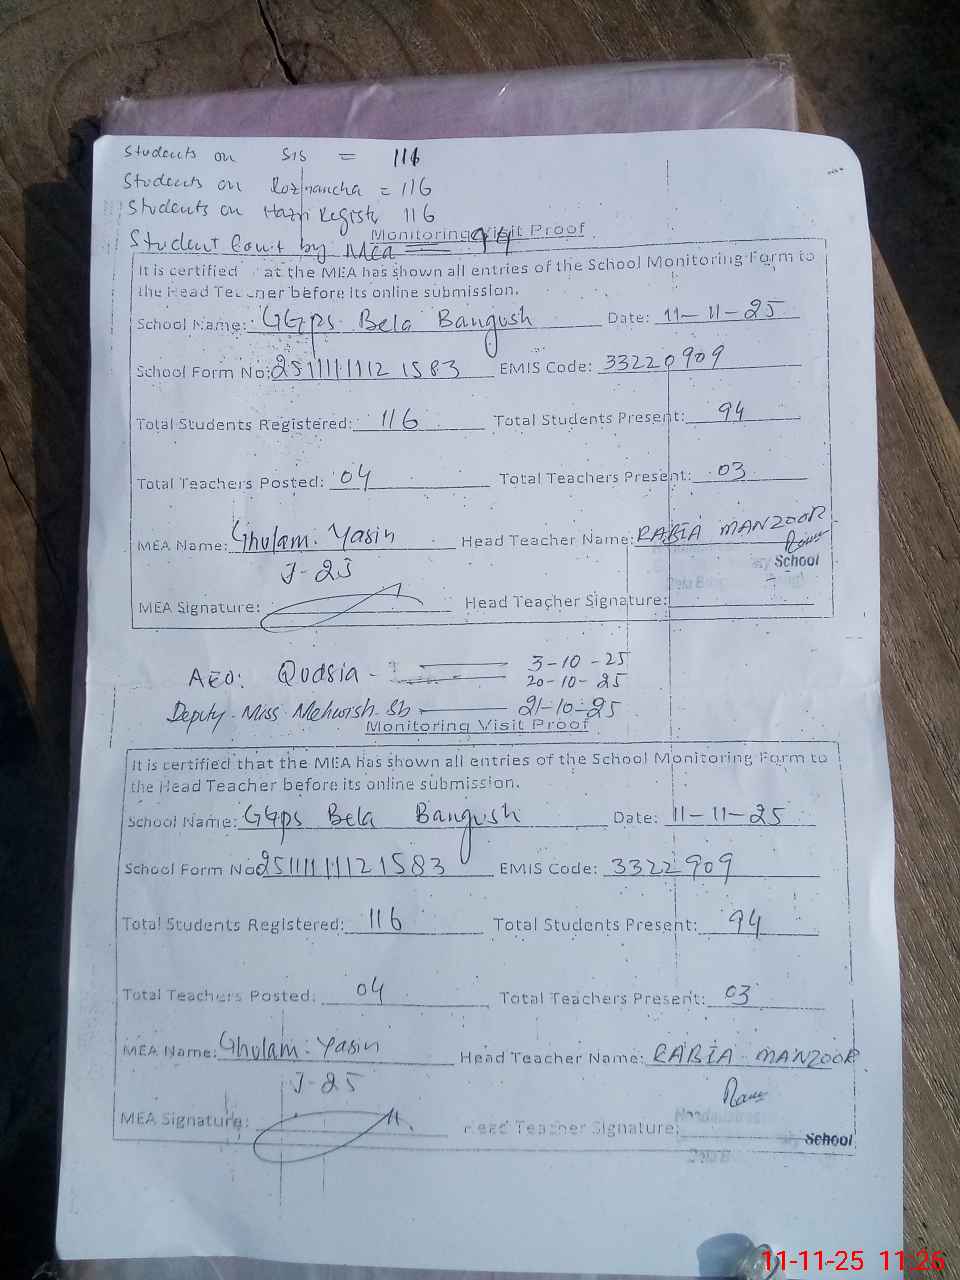 Students on SIS = 116
Students on Roznamcha = 116
Students on Hazri Registr 116
Monitoring Visit Proof
Student Count by Mea = 94
It is certified at the MEA has shown all entries of the School Monitoring Form to
the Head Teacher before its online submission.
School Name: GGps Bela Bangush Date: 11-11-25
School Form No: EMIS Code: 33220909
Total Students Registered: 116 Total Students Present: 94
Total Teachers Posted: 04 Total Teachers Present: 03
MEA Name: Ghulam Yasin Head Teacher Name: RABIA MANZOOR
School
MEA Signature: Head Teacher Signature:
AEO: Qudsia - 3-10-25
20-10-25
Deputy Miss Mehwish Sb 21-10-25
Monitoring Visit Proof
It is certified that the MEA has shown all entries of the School Monitoring Form to
the Head Teacher before its online submission.
School Name: GGps Bela Bangush Date: 11-11-25
School Form No: EMIS Code: 3322909
Total Students Registered: 116 Total Students Present: 94
Total Teachers Posted: 04 Total Teachers Present: 03
MEA Name: Ghulam Yasin Head Teacher Name: RABIA MANZOOR
J-25
MEA Signature: Head Teacher Signature:
School
11-11-25 11:26